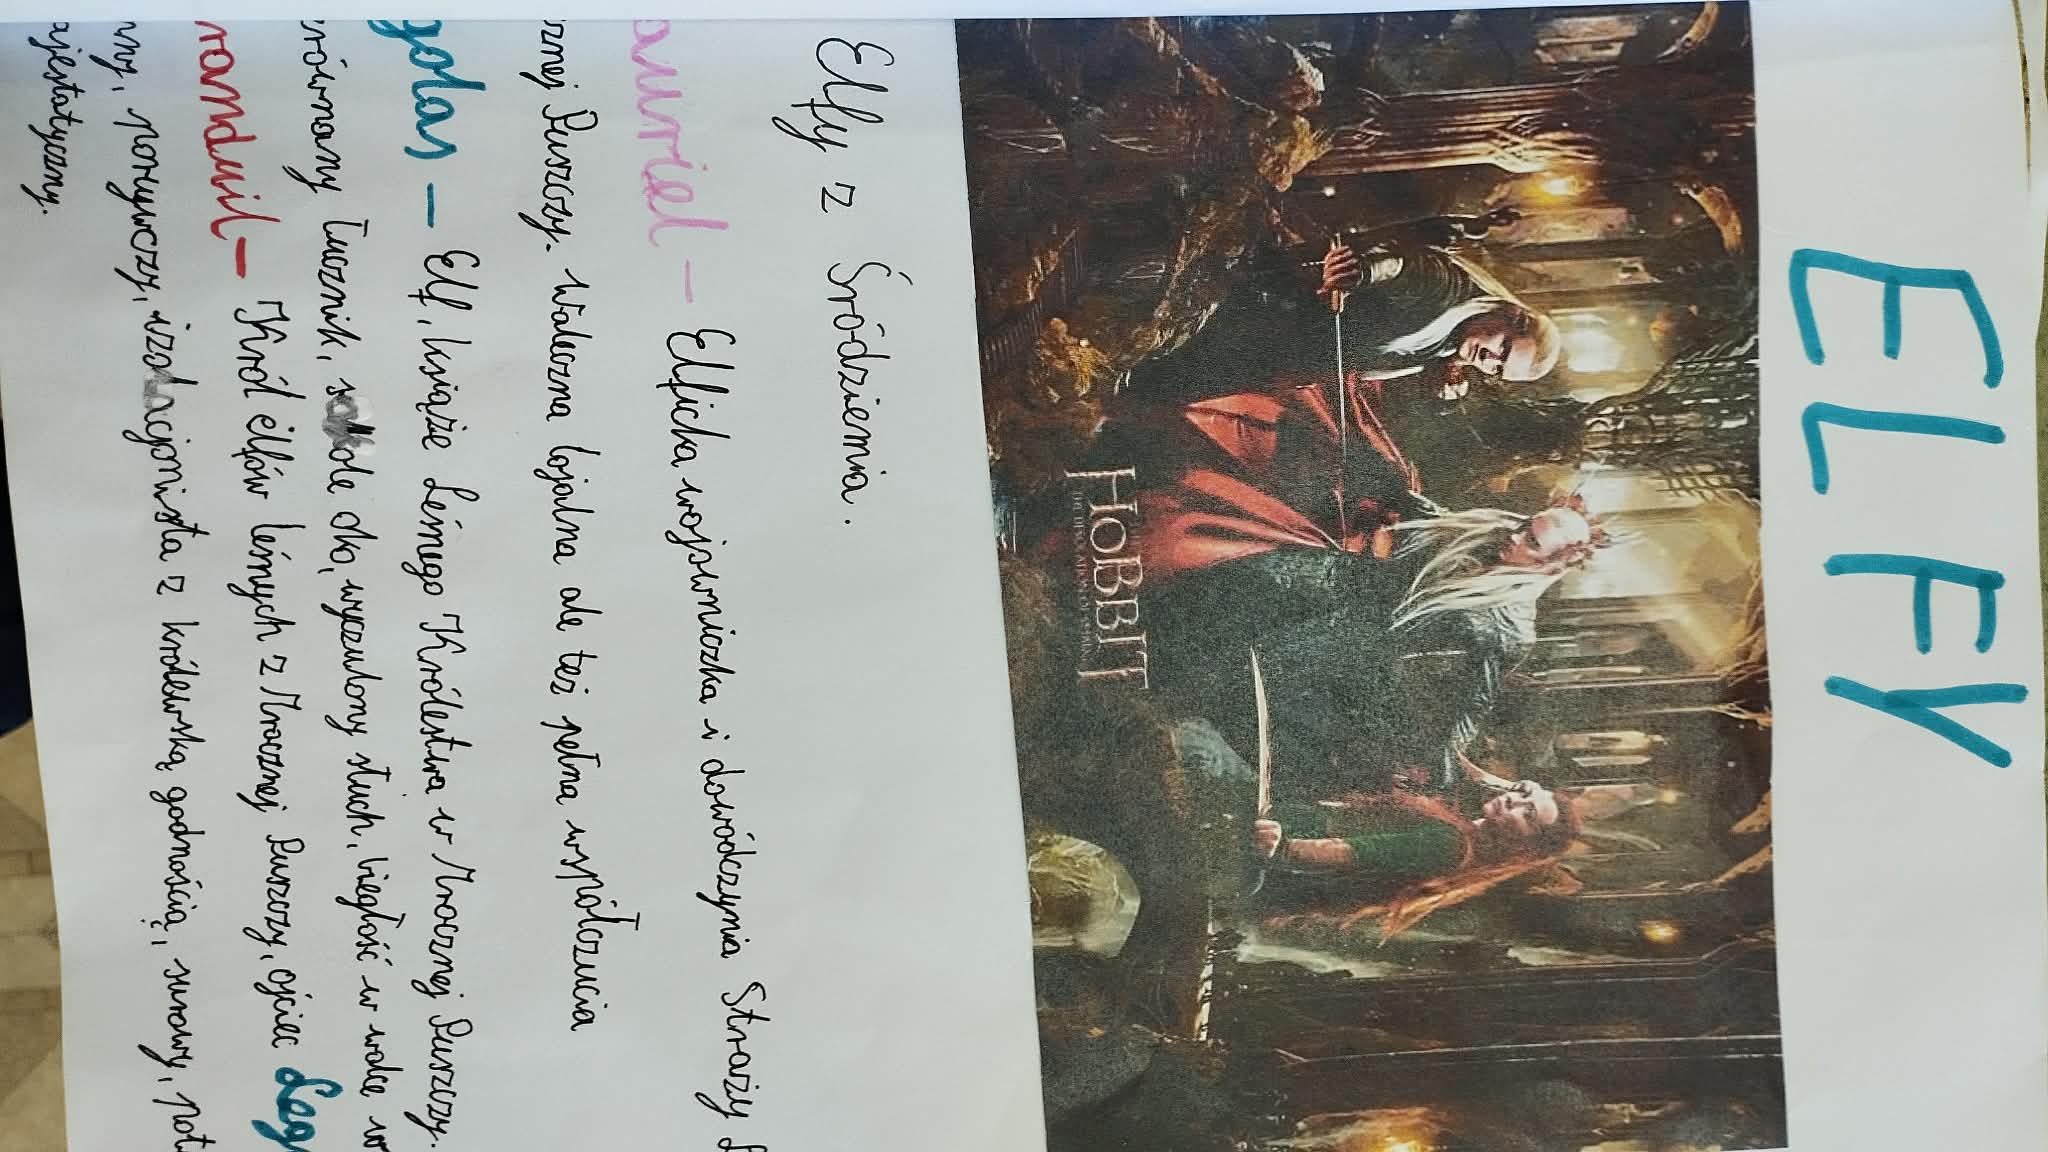 ELFY
HOBBIT
Elfy z Śródziemia.
auriel – Elficka wojowniczka i dowódczynia Straży L
cznej Puszczy. Waleczna lojalna ale też pełna współczucia
golas – Elf, książe Leśnego Królestwa w Mrocznej Puszczy.
zrównany Łucznik, sokole oko, wyczulony słuch, biegłość w walce w
randuil – Król elfów leśnych z Mrocznej Puszczy, ojciec Lego
mny, porywczy, izolacjonista z królewską godnością, surowy,
ajestatyczny.